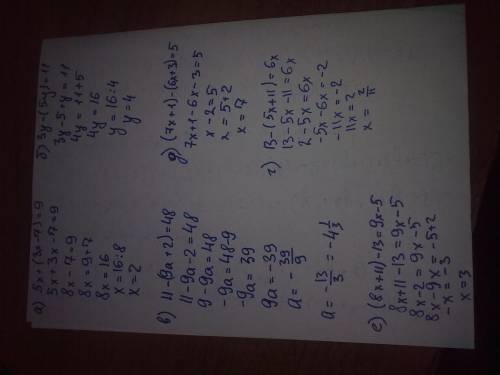 а) 5x+(3x-7)=9
5x+3x-7=9
8x-7=9
8x=9+7
8x=16
x=16:8
x=2
б) 3y-(5-y)=11
3y-5+y=11
4y=11+5
4y=16
y=16:4
y=4
в) 11-(9a+2)=48
11-9a-2=48
9-9a=48
-9a=48-9
-9a=39
9a=-39
a=-39/9
a=-13/3=-4 1/3
д) (7x+1)-(6x+3)=5
7x+1-6x-3=5
x-2=5
x=5+2
x=7
г) 13-(5x+11)=6x
13-5x-11=6x
2-5x=6x
-5x-6x=-2
-11x=-2
11x=2
x=2/11
е) (8x+11)-13=9x-5
8x+11-13=9x-5
8x-2=9x-5
8x-9x=-5+2
-x=-3
x=3